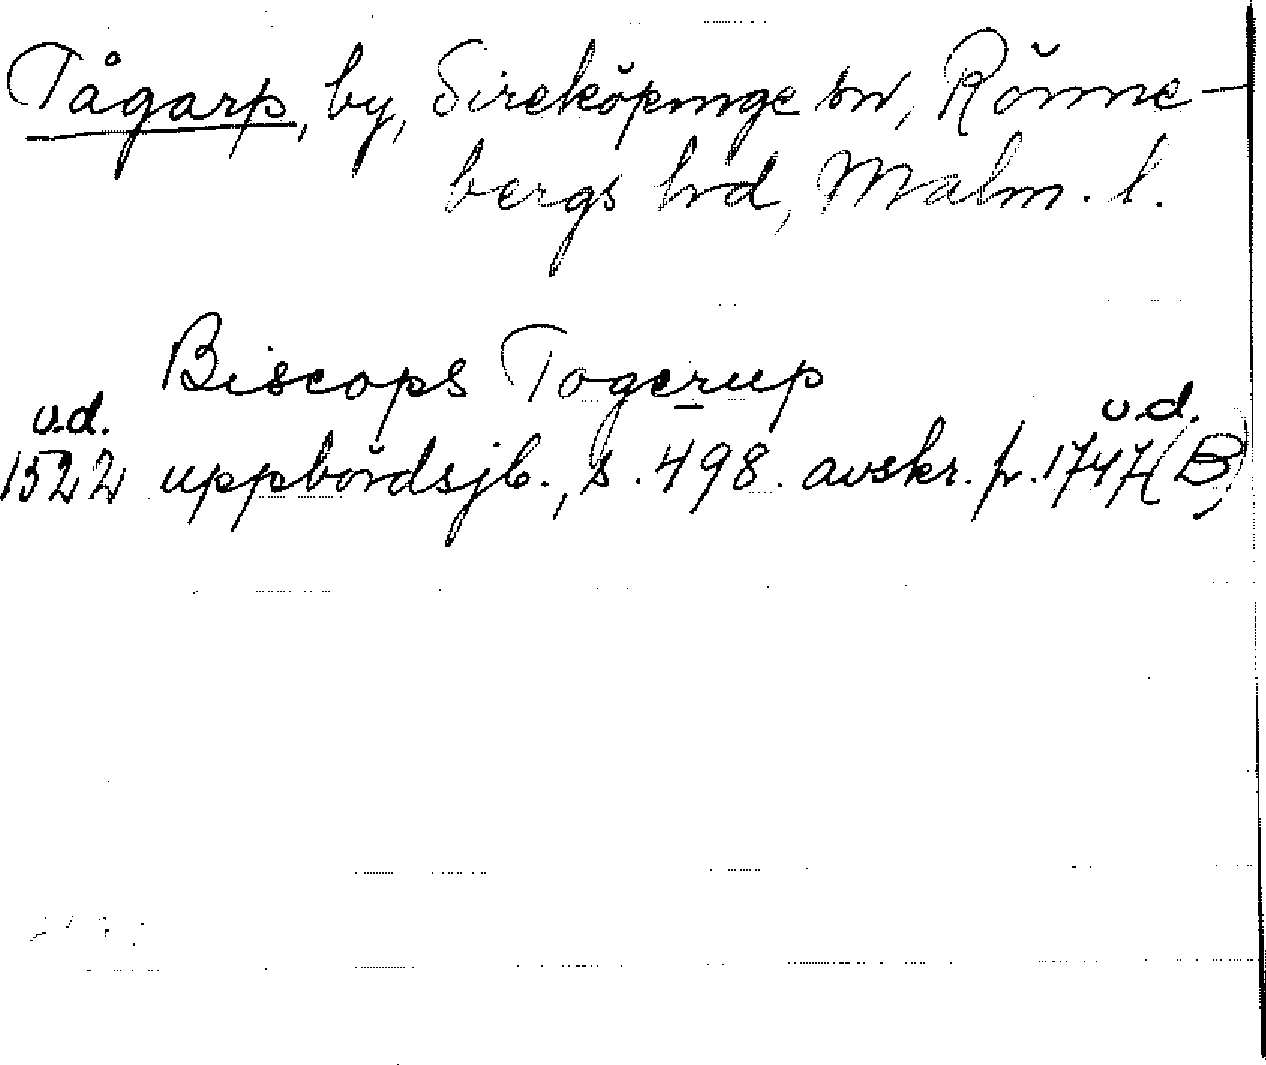 Tågarp, by, Sireköpinge sn, Rönne-
bergs hrd, Malm. l.
Biscops Togerup
u.d. u.d.
1522 uppbördsjb., s. 498. avskr. fr. 1747 (B)